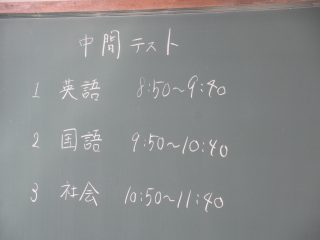 中間テスト
1 英語 8:50～9:40
2 国語 9:50～10:40
3 社会 10:50～11:40